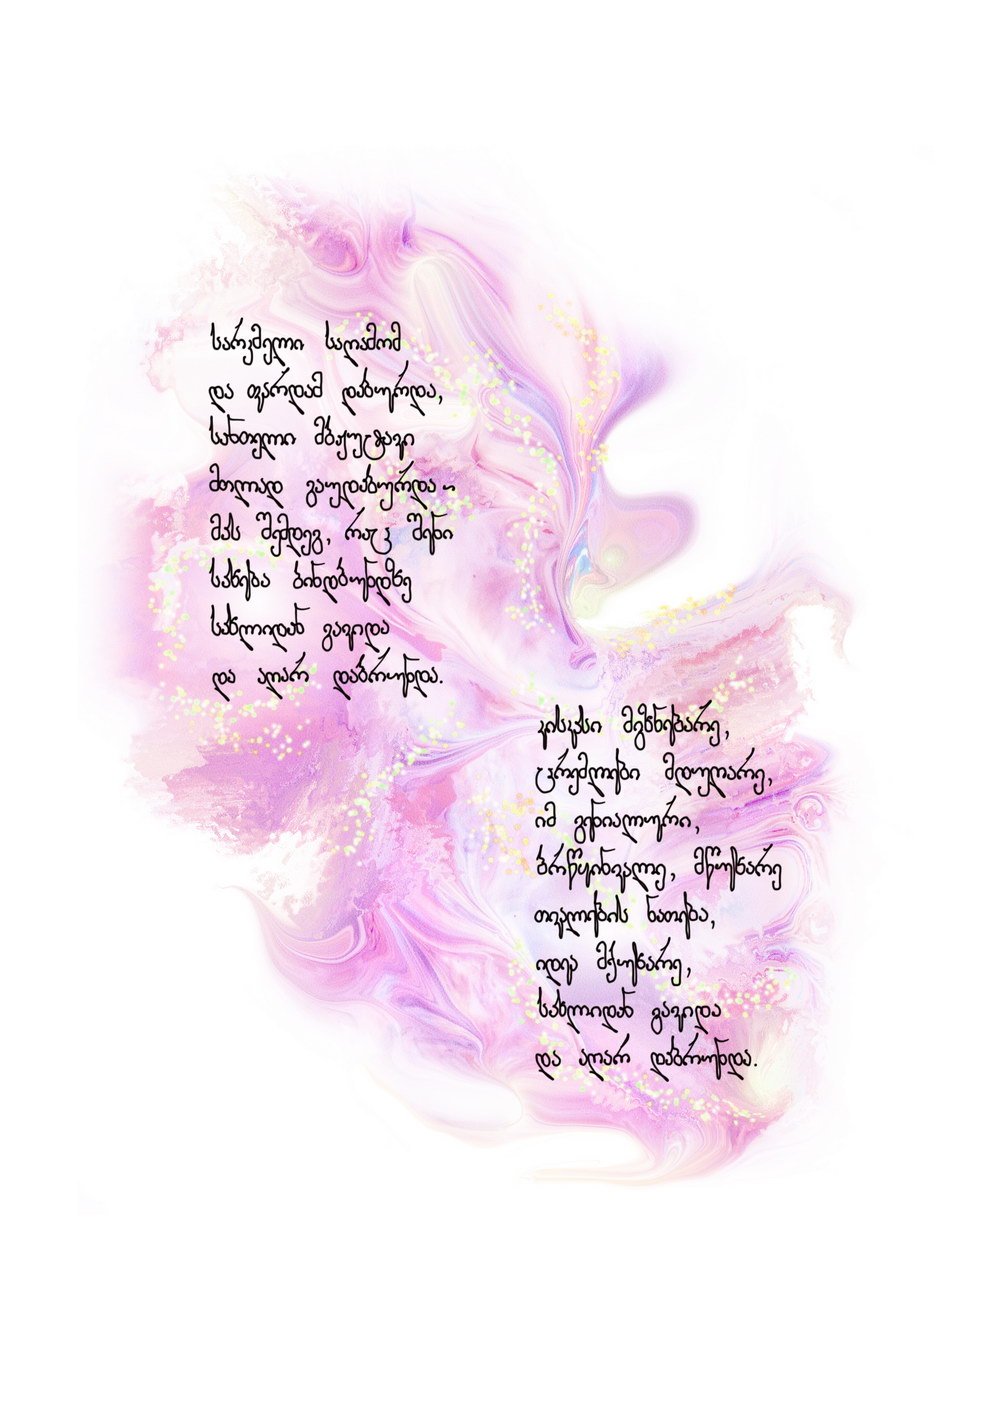 სარკმელი საღამომ
და ფარდამ დაბურდა,
სანთელი მბჟუტავი
მთლად გაუდაბურდა -
მას შემდეგ, რაც შენი
სახება ბინდბუნდზე
სახლიდან გავიდა
და აღარ დაბრუნდა.
კისკისი მგზნებარე,
ცრემლები მდუღარე,
იმ გენიალური,
ბრწყინვალე, მწუხარე
თვალების ნათება,
იდეა მქუხარე,
სახლიდან გავიდა
და აღარ დაბრუნდა.